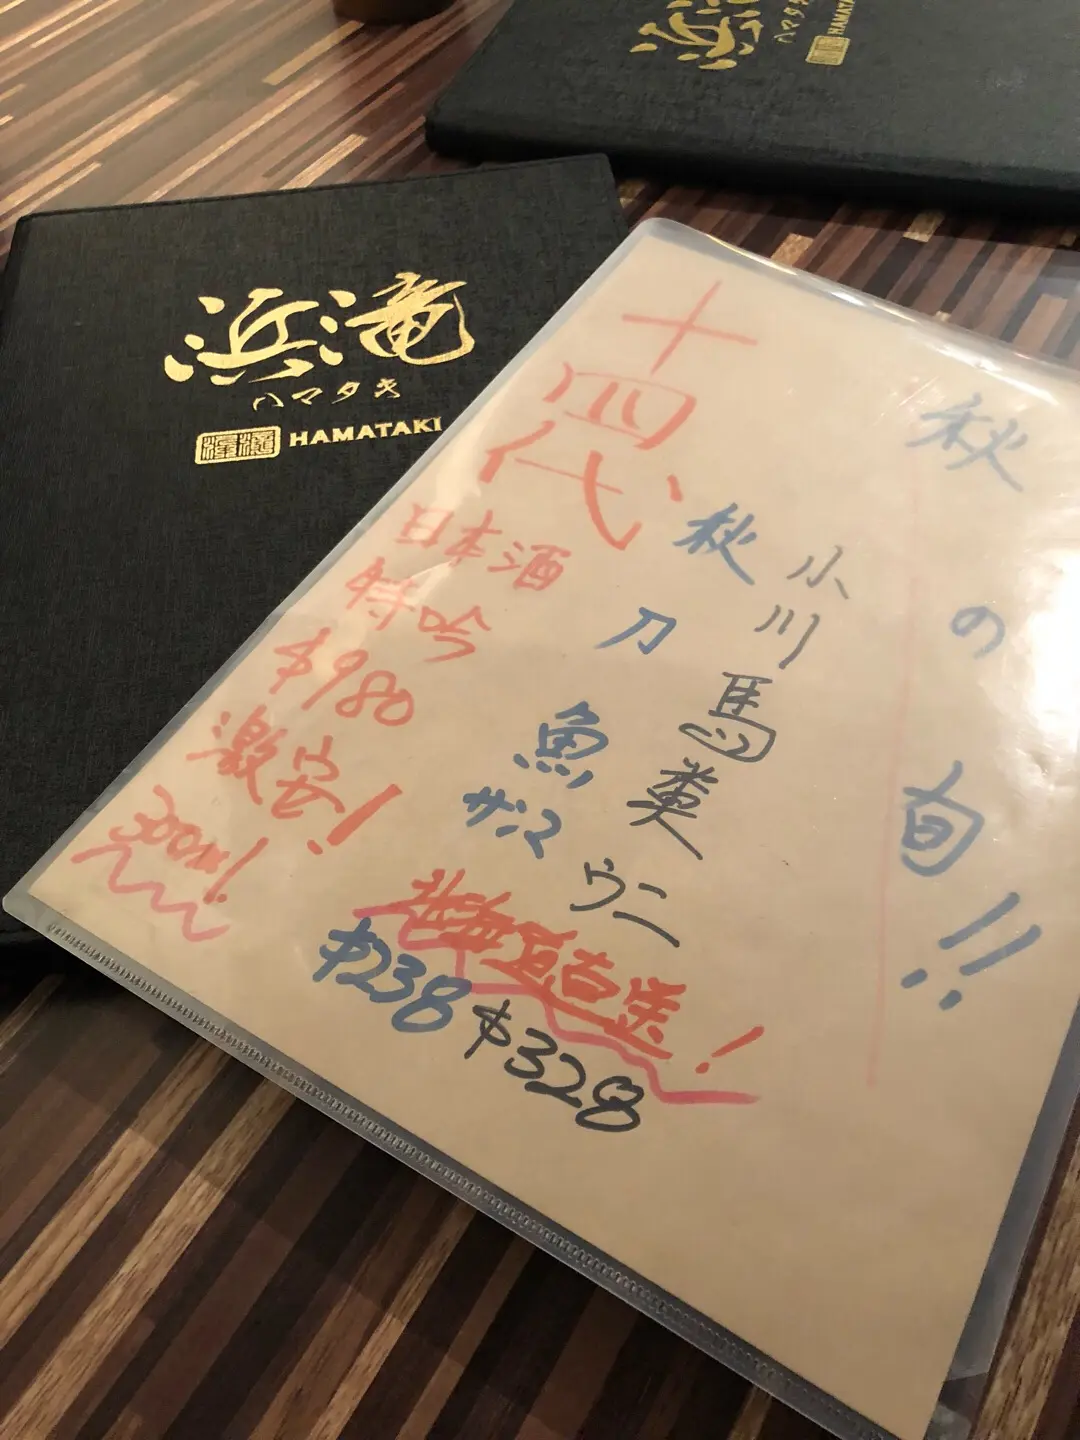 浜滝
ハマタキ
HAMATAKI
浜滝
HAMATA
秋の旬!!
小川馬糞ウニ
$328
秋刀魚
サンマ
$238
北海道直送!
十四代
日本酒
特吟
$980
激安!
300ml